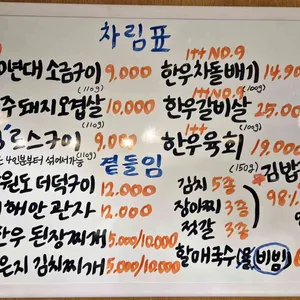 차림표
0년대 소금구이 9,000
(110g)
주돼지오겹살 10,000
(110g)
르스구이 9,000
4인분부터 섞어서가능 (110g)
곁들임
원도 더덕구이 12.000
해안 관자 12.000
한우 된장찌개 5.000/10.000
은지 김치찌개 5.000/10.000
1++ NO.9
한우차돌배기 14.90
(100g)
1++ NO.9
한우갈비살 25.00
(100g)
1++
한우육회 19.000
(150g)
김치 5종
장아찌 3종
젓갈 3종
김밥
98%
할매국수(물,비빔)